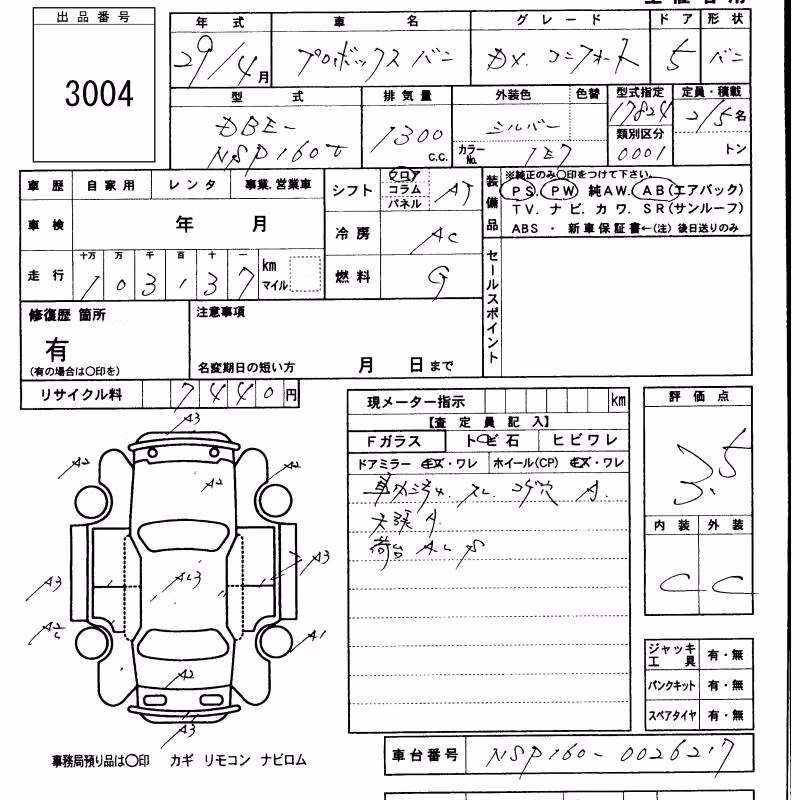 出品番号
3004
年式 車名 グレード ドア 形状
29/4月 プロボックス バン DX コンフォート 5 バン
型式 排気量 外装色 色替 型式指定 定員・積載
DBE-
NSP160V 1300 c.c. シルバー 17824 2/5名
カラーNo. 1E7 類別区分 0001 トン
車歴 自家用 レンタ 事業.営業車
シフト フロア コラム パネル AT
車検 年 月
冷房 AC
走行 十万 万 千 百 十 一
103137 km マイル
燃料 G
装備品 ※純正のみ○印をつけて下さい。
PS. PW 純AW. AB(エアバック)
TV. ナビ. カワ. SR(サンルーフ)
ABS ・ 新車保証書←(注) 後日送りのみ
セールスポイント
修復歴 箇所
有
(有の場合は○印を)
注意事項
名変期日の短い方 月 日まで
リサイクル料 7440円
現メーター指示 km
【査定員記入】
Fガラス トビ石 ヒビワレ
ドアミラー キズ・ワレ ホイール(CP) キズ・ワレ
スレ コゲ穴 A
天張 A
荷台 A
評価点
3.5
内装 外装
C C
A3
A2 A2
A2
A3 A3
A2 A1
A2
A3
ジャッキ 工具 有・無
パンクキット 有・無
スペアタイヤ 有・無
事務局預り品は○印 カギ リモコン ナビロム
車台番号 NSP160-0026217